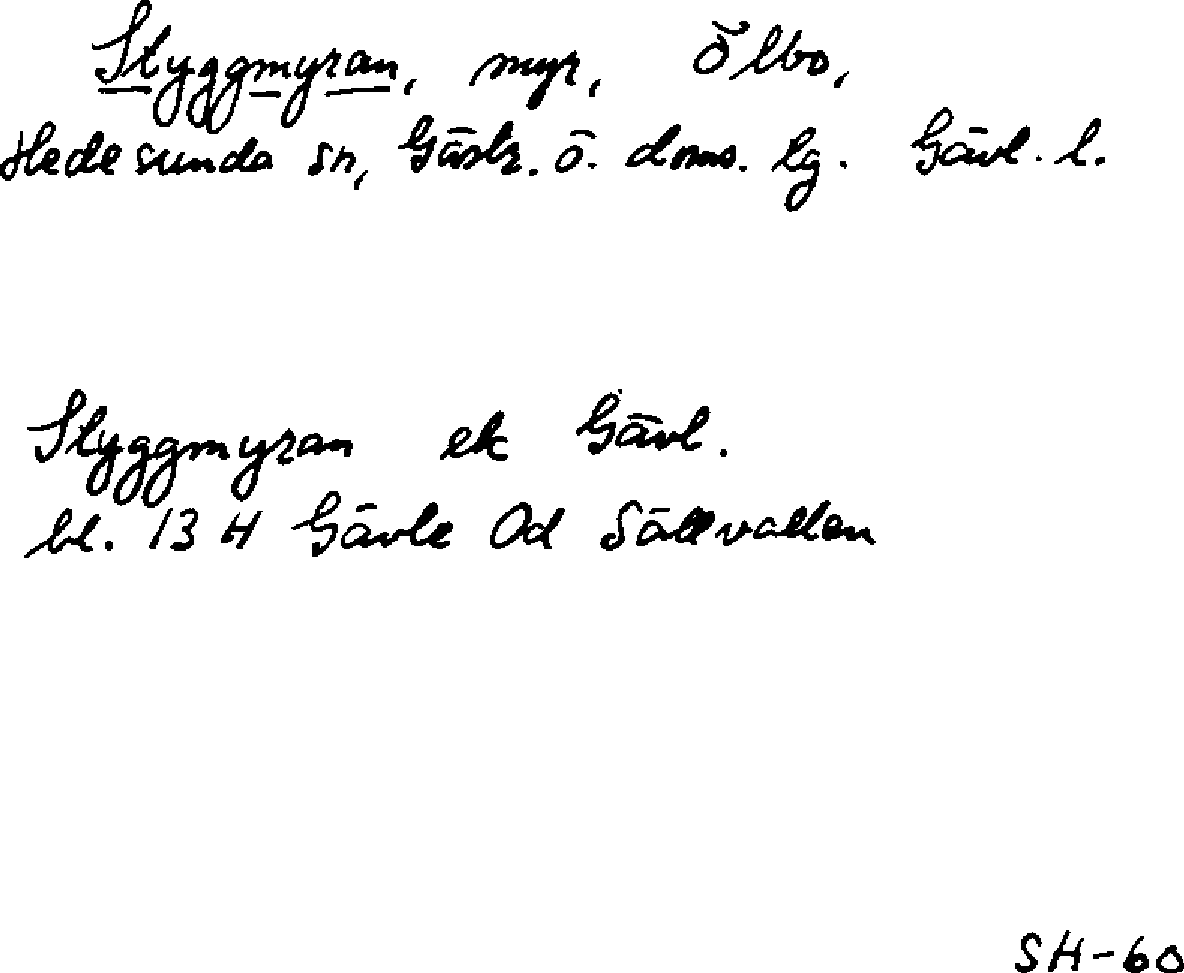 Styggmyran, myr, Ölbo,
Hedesunda sn, Gästr. ö. doms. lg. Gävl. l.
Styggmyran ek Gävl.
bl. 13 H Gävle 0d Sällvallen
SH-60